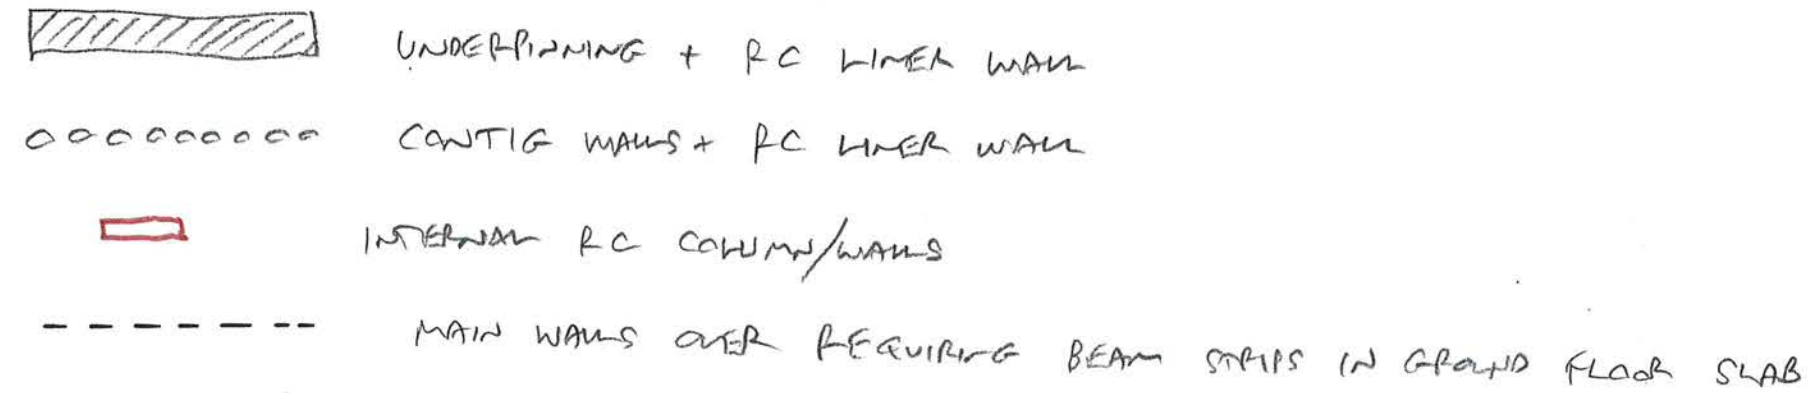 UNDERPINNING + RC LINER WALL
CONTIG WALLS + RC LINER WALL
INTERNAL RC COLUMN/WALLS
MAIN WALLS OVER REQUIRING BEAM STRIPS IN GROUND FLOOR SLAB